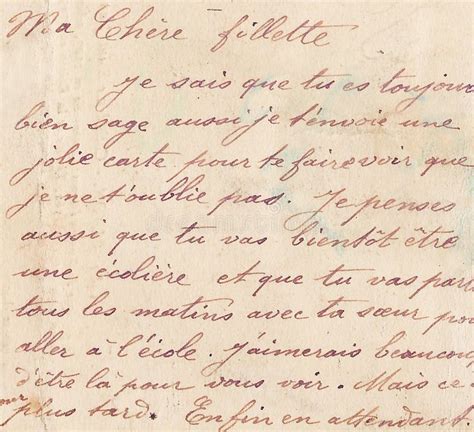 Ma Chère fillette
Je sais que tu es toujour
bien sage aussi je t'envoie une
jolie carte pour te faire voir que
je ne t'oublie pas. Je penses
aussi que tu vas bientôt être
une écolière et que tu vas part
tous les matins avec ta sœur pou
aller à l'école. J'aimerais beaucou
d'être là pour vous voir. Mais ce
plus tard. Enfin en attendant.